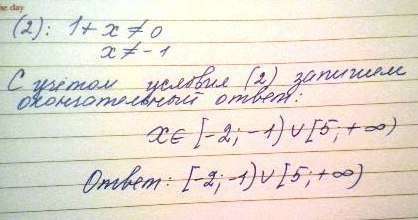 he day
(2): 1+x≠0
x≠-1
С учётом условия (2) запишем
окончательный ответ:
x∈ [-2;-1)∪[5;+∞)
Ответ: [-2;-1)∪[5;+∞)